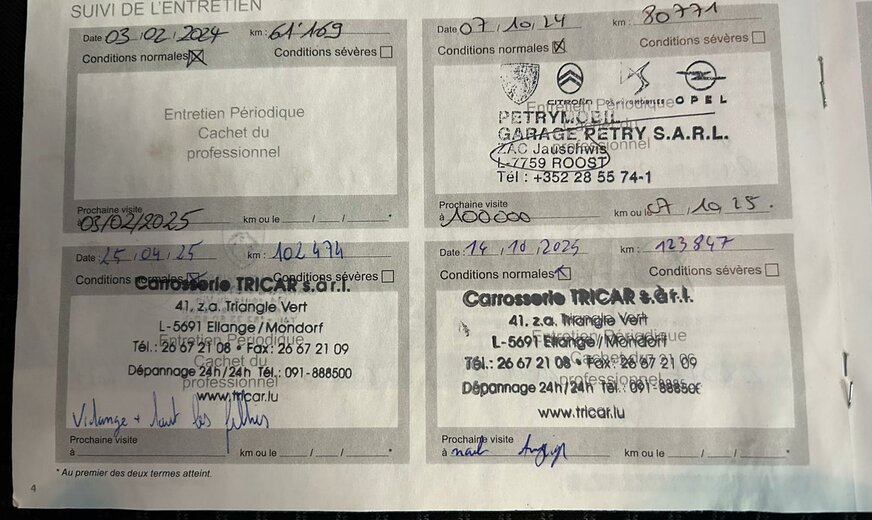 SUIVI DE L'ENTRETIEN
Date 03 02 2024 km : 61'169
Conditions normales Conditions sévères
Entretien Périodique
Cachet du
professionnel
Prochaine visite
à 03/02/2025 km ou le / / *
Date 07 / 10 / 24 km : 80771
Conditions normales Conditions sévères
CITROËN OPEL
Entretien Périodique
PETRYMOBIL
GARAGE PETRY S.A.R.L.
ZAC Jauschwis
L-7759 ROOST
Tél : +352 28 55 74-1
Prochaine visite
à 100000 km ou le 07 / 10 / 25 *
Date : 25 / 04 / 25 km : 102474
Conditions normales Conditions sévères
Carrosserie TRICAR s.à r.l.
41, z.a. Triangle Vert
L-5691 Ellange/Mondorf
Entretien Périodique
Tél.: 26 67 21 08 • Fax: 26 67 21 09
Cachet du
Dépannage 24h/24h Tél.: 091-888500
professionnel
www.tricar.lu
Vidange + tout les filtres
Prochaine visite
à km ou le / / *
Date : 14 10 2025 km : 123847
Conditions normales Conditions sévères
Carrosserie TRICAR s.à r.l.
41, z.a. Triangle Vert
Entretien Périodique
L-5691 Ellange/Mondorf
Cachet du
Tél.: 26 67 21 08 • Fax: 26 67 21 09
professionnel
Dépannage 24h/24h Tél.: 091-888500
www.tricar.lu
Prochaine visite
à km ou le / / *
* Au premier des deux termes atteint.
4